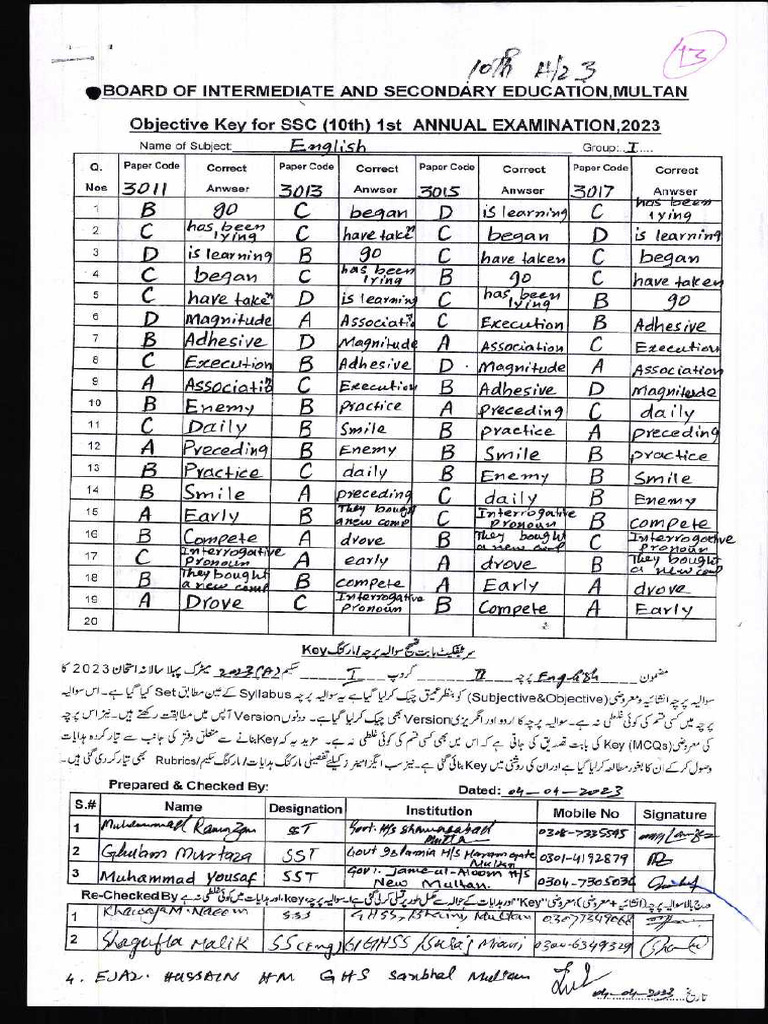 10th A/23
13
BOARD OF INTERMEDIATE AND SECONDARY EDUCATION,MULTAN
Objective Key for SSC (10th) 1st ANNUAL EXAMINATION,2023
Name of Subject: English Group: I....
Q. Nos Paper Code 3011 Correct Anwser Paper Code 3013 Correct Anwser Paper Code 3015 Correct Anwser Paper Code 3017 Correct Anwser
1 B go C began D is learning C has been lying
2 C has been lying C have taken C began D is learning
3 D is learning B go C have taken C began
4 C began C has been lying B go C have taken
5 C have taken D is learning C has been lying B go
6 D Magnitude A Associatio C Execution B Adhesive
7 B Adhesive D Magnitude A Association C Execution
8 C Execution B Adhesive D Magnitude A Association
9 A Associatio C Execution B Adhesive D Magnitude
10 B Enemy B Practice A preceding C daily
11 C Daily B Smile B practice A preceding
12 A Preceding B Enemy B Smile B practice
13 B Practice C daily B Enemy B Smile
14 B Smile A preceding C daily B Enemy
15 A Early B They bought a new comp C Interrogative pronoun B compete
16 B Compete A drove B They bought a new comp C Interrogative pronoun
17 C Interrogative pronoun A early A drove B They bought a new comp
18 B They bought a new comp B compete A Early A drove
19 A Drove C Interrogative pronoun B Compete A Early
20
سرٹیفکیٹ بابت تصحیح سوالیہ پرچہ / مارکنگ Key
مضمون English پرچہ II گروپ I سکیم 2023(A) میٹرک پہلا سالانہ امتحان 2023 کا
سوالیہ پرچہ انشائیہ ومعروضی (Subjective&Objective) کو بنظر عمیق چیک کر لیا گیا ہے یہ سوالیہ پرچہ Syllabus کے عین مطابق Set کیا گیا ہے۔ اس سوالیہ
پرچہ میں کسی قسم کی کوئی غلطی نہ ہے۔ سوالیہ پرچہ کا اردو اور انگریزی Version بھی چیک کر لیا گیا ہے۔ دونوں Version آپس میں مطابقت رکھتے ہیں۔ نیز اس پرچہ
کی معروضی (MCQs) Key کی بابت تصدیق کی جاتی ہے کہ اس میں بھی کسی قسم کی کوئی غلطی نہ ہے۔ مزید یہ کہ Key بنانے سے متعلق دفتر کی جانب سے تیار کردہ ہدایات
وصول کر کے ان کا بغور مطالعہ کر لیا گیا ہے اور ان کی روشنی میں Key بنائی گئی ہے۔ نیز سب ایگزامینرز کیلئے تفصیلی مارکنگ ہدایات / مارکنگ سکیم / Rubrics بھی تیار کر دی گئی ہیں۔
Prepared & Checked By: Dated: 04-04-2023
S.# Name Designation Institution Mobile No Signature
1 Muhammad Ramzan SST Govt. H/S
2 Ghulam Murtaza SST Govt Islamia H/S Haram gate Multan 0301-4192879
3 Muhammad Yousaf SST Govt. Jame-ul-Aloom H/S New Multan. 0304-7305036
Re-Checked By
1 Khawaja M. Naeem SSS GHSS, Multan
2 Shagufta Malik SS(Eng) GGHSS 0300-6349329
4. EJAZ HUSSAIN HM GHS Sanbhal Multan
04-04-2023 تاریخ